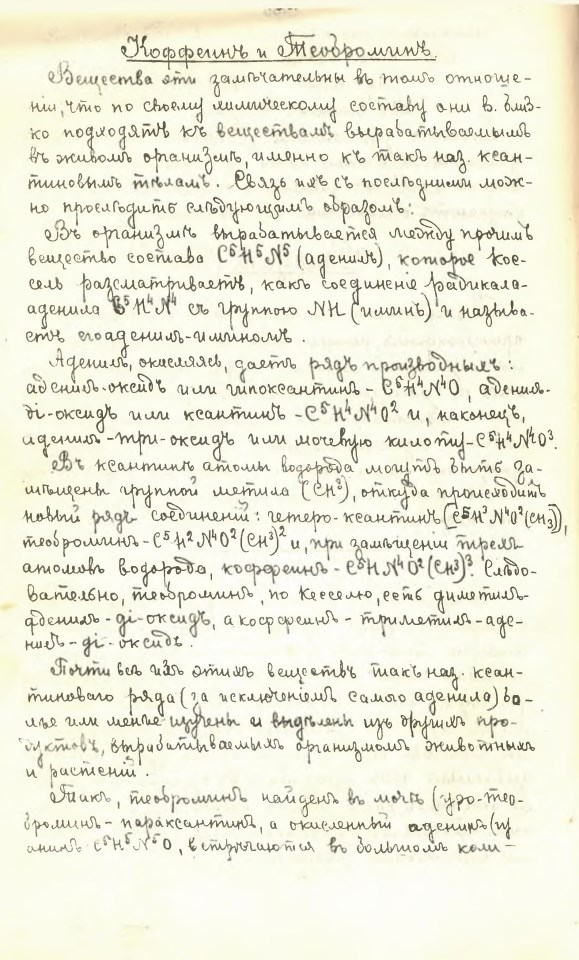 Коффеинъ и Теоброминъ.
Вещества эти замѣчательны въ томъ отноше-
ніи, что по своему химическому составу они в. близ-
ко подходятъ къ веществамъ вырабатываемымъ
въ живомъ организмѣ, именно къ такъ наз. ксан-
тиновымъ тѣламъ. Связь ихъ съ послѣдними мож-
но прослѣдить слѣдующимъ образомъ:
Въ организмѣ вырабатывается между прочимъ
вещество состава C⁵H⁵N⁵ (аденилъ), которое Кос-
сель разсматриваетъ, какъ соединеніе радикала-
аденила C⁵H⁴N⁴ съ группою NH (иминъ) и называ-
етъ его аденилъ-иминомъ.
Аденилъ, окисляясь, даетъ рядъ производныхъ:
аденилъ-оксидъ или гипоксантинъ - C⁵H⁴N⁴O, аденилъ-
ді-оксидъ или ксантинъ - C⁵H⁴N⁴O² и, наконецъ,
аденилъ-три-оксидъ или мочевую кислоту - C⁵H⁴N⁴O³.
Въ ксантинѣ атомы водорода могутъ быть за-
мѣщены группой метила (CH³), откуда происходитъ
новый рядъ соединеній: гетеро-ксантинъ [C⁵H³N⁴O²(CH₃)],
теоброминъ - C⁵H²N⁴O²(CH³)² и, при замѣщеніи трехъ
атомовъ водорода, коффеинъ - C⁵HN⁴O²(CH³)³. Слѣдо-
вательно, теоброминъ, по Косселю, есть диметилъ-
аденилъ-ді-оксидъ, а коффеинъ - триметилъ-аде-
нилъ-ді-оксидъ.
Почти всѣ изъ этихъ веществъ такъ наз. ксан-
тиноваго ряда (за исключеніемъ самого аденила) бо-
лѣе или менѣе изучены и выдѣлены изъ другихъ про-
дуктовъ, вырабатываемыхъ организмомъ животныхъ
и растеній.
Такъ, теоброминъ найденъ въ мочѣ (уро-тео-
броминъ - параксантинъ, а окисленный аденинъ (гу
анинъ C⁵H⁵N⁵O, встрѣчаются въ большомъ коли-